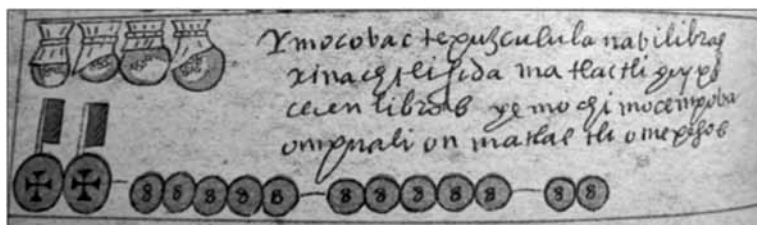 Ymocobac tepuzculula nabilibras
ma tlactli
cecen libras ye mochi mocempoba
ompuali on matlac tli omepesos
8 8 8 8 8 8 8 8 8 8 8 8